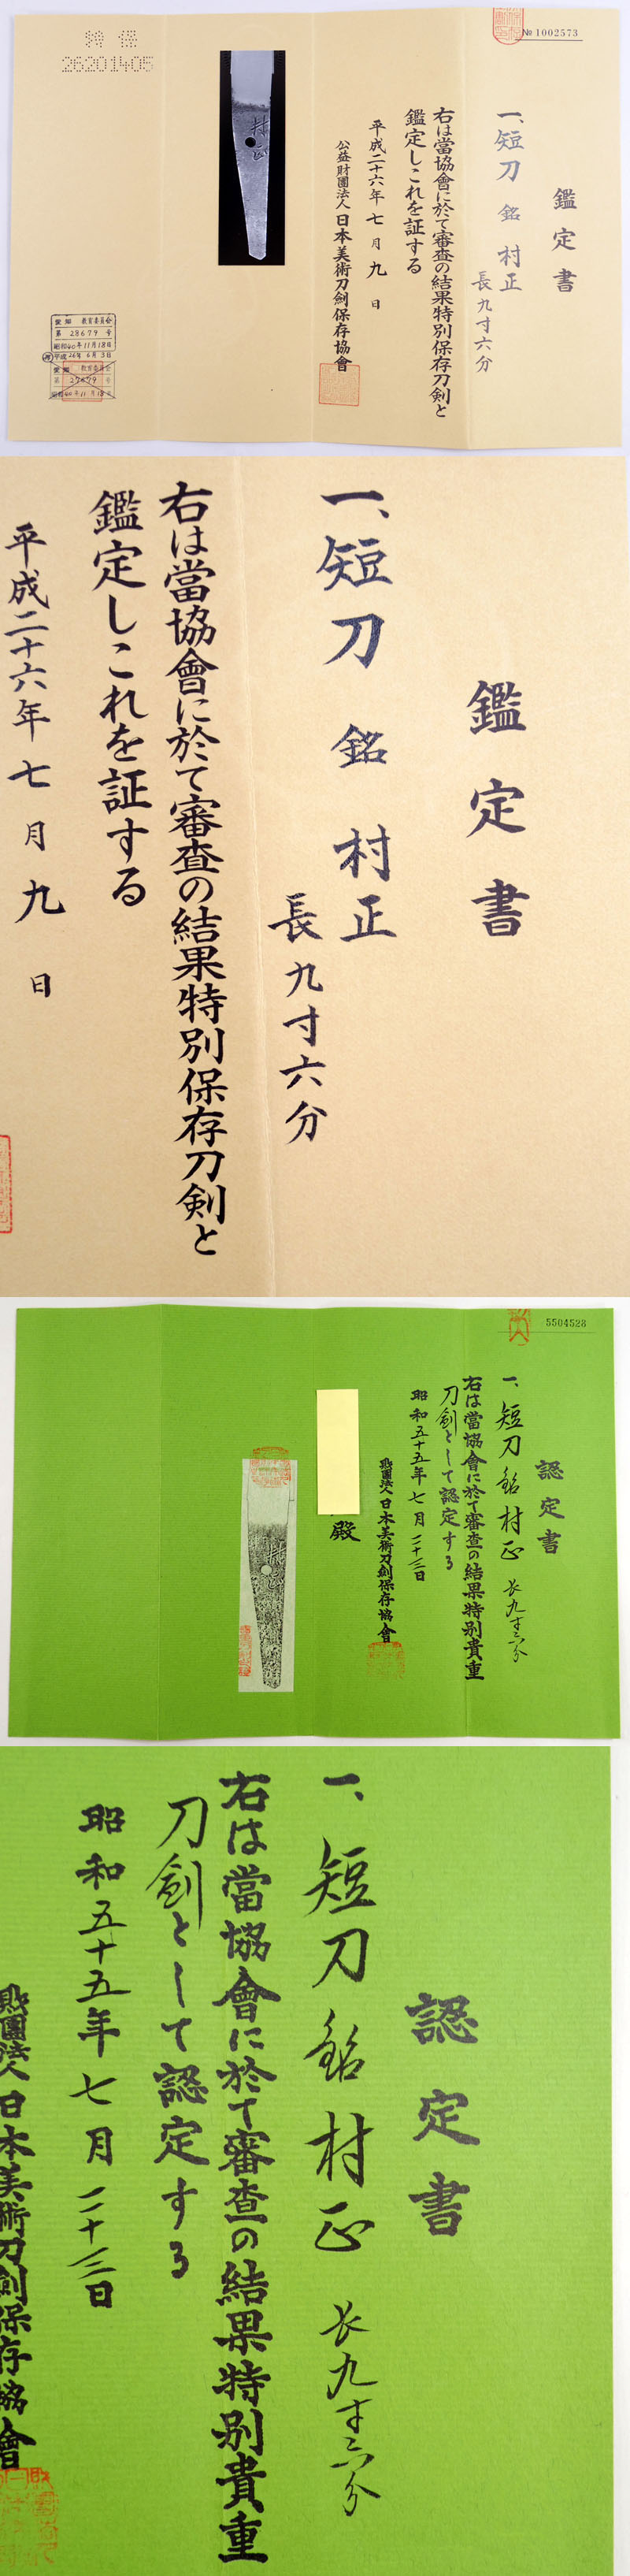 特保
26201405
№ 1002573
鑑定書
一、短刀 銘 村正
長九寸六分
右は當協會に於て審査の結果特別保存刀剣と
鑑定しこれを証する
平成二十六年七月九日
公益財團法人日本美術刀劍保存協會
村正
愛知 教育委員会
第 28679 号
昭和40年11月18日
平成26年6月3日
鑑定書
一、短刀 銘 村正
長九寸六分
右は當協會に於て審査の結果特別保存刀剣と
鑑定しこれを証する
平成二十六年七月九日
5504528
認定書
一、短刀 銘 村正 長九寸六分
右は當協會に於て審査の結果特別貴重
刀剣として認定する
昭和五十五年七月二十三日
財團法人日本美術刀劍保存協會
殿
村正
認定書
一、短刀 銘 村正 長九寸六分
右は當協會に於て審査の結果特別貴重
刀剣として認定する
昭和五十五年七月二十三日
財團法人日本美術刀劍保存協會